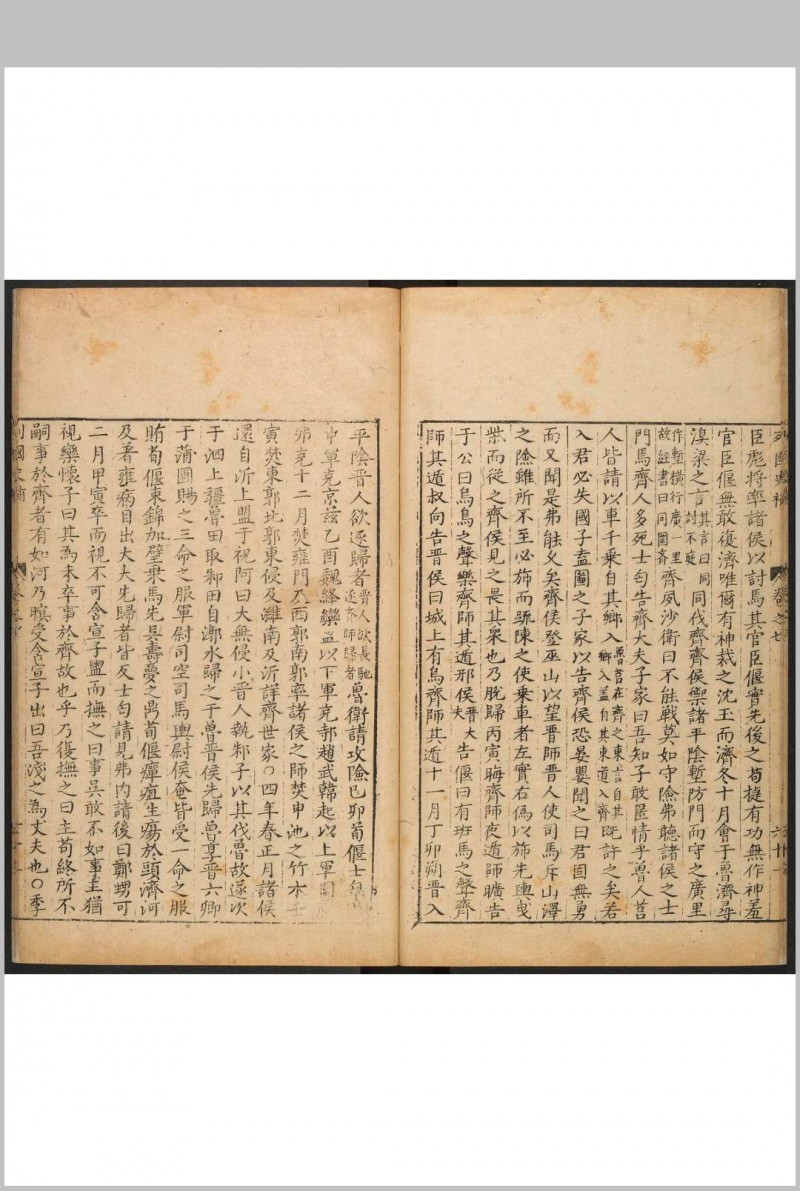 臣彪將率諸侯以討焉其官臣偃實先後之苟捷有功無作神羞
官臣偃無敢復濟唯爾有神裁之沈玉而濟冬十月會于魯濟尋
溴梁之言其言曰同討不庭同伐齊齊侯禦諸平陰塹防門而守之廣里
作塹橫行廣一里故經書曰同圍齊齊夙沙衛曰不能戰莫如守險弗聽諸侯之士
門焉齊人多死士匄告齊大夫子家曰吾知子敢匿情乎魯人莒
人皆請以車千乘自其鄉入魯莒在齊之東言自其鄉入蓋自其東道入齊既許之矣若
入君必失國子盍圖之子家以告齊侯恐晏嬰聞之曰君固無勇
而又聞是弗能久矣齊侯登巫山以望晉師晉人使司馬斥山澤
之險雖所不至必旆而疏陳之使乘車者左實右偽以旆先輿曳
柴而從之齊侯見之畏其衆也乃脫歸丙寅晦齊師夜遁師曠告
于公曰烏烏之聲樂齊師其遁邢侯晉大夫告偃曰有班馬之聲齊
師其遁叔向告晉侯曰城上有烏齊師其遁十一月丁卯朔晉入
平陰晉人欲逐歸者晉人欲長馳逐不師歸者魯衛請攻險己卯荀偃士匄
中軍克京茲乙酉魏絳欒盈以下軍克邿趙武韓起以上軍圍
弗克十二月焚雍門及西郭南郭率諸侯之師焚申池之竹木壬
寅焚東郭北郭東侵及濰南及沂詳齊世家○四年春正月諸侯
還自沂上盟于祝阿曰大無侵小晉人執邾子以其伐魯故遂次
于泗上疆魯田取邾田自漷水歸之于魯晉侯先歸魯享晉六卿
于蒲圃賜之三命之服軍尉司空司馬輿尉侯奄皆受一命之服
賄荀偃束錦加璧乘馬先吳壽夢之鼎荀偃癉疽生瘍於頭濟河
及著雍病目出大夫先歸者皆反士匄請見弗內請後曰鄭甥可
二月甲寅卒而視不可含宣子盥而撫之曰事吳敢不如事主猶
視欒懷子曰其為未卒事於齊故也乎乃復撫之曰主苟終所不
嗣事於齊者有如河乃瞑受含宣子出曰吾淺之為丈夫也○季